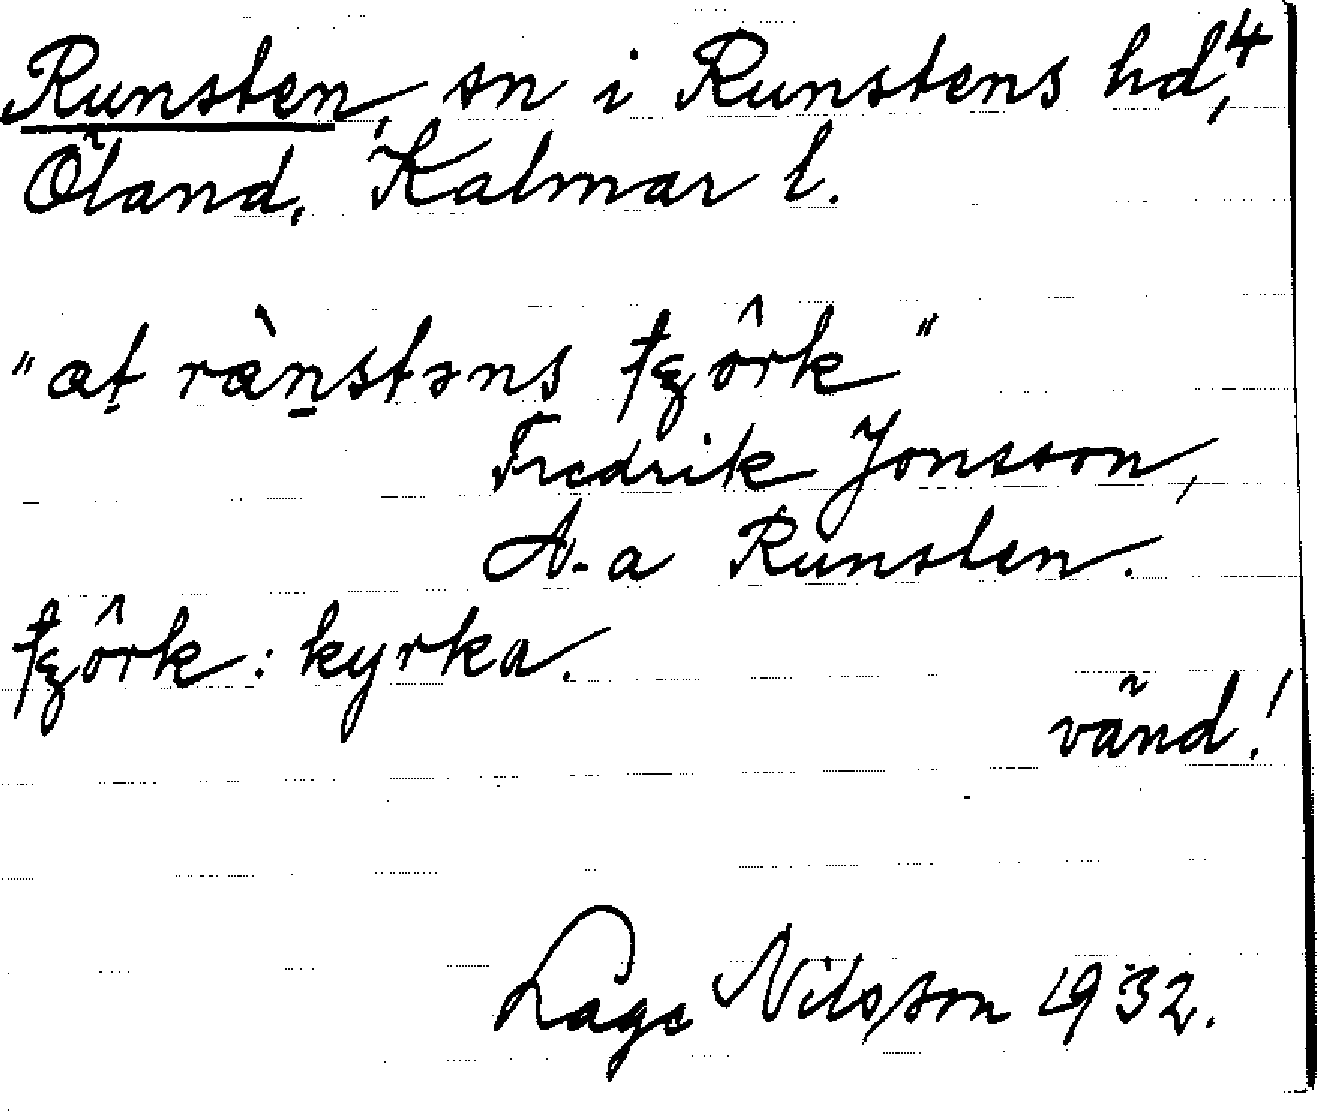 Runsten, sn i Runstens hd,4
Öland, Kalmar l.
"at rànstəns tʒôrk"
Fredrik Jonsson,
N. a Runsten.
tʒôrk: kyrka.
vänd!
Lage Nilsson 1932.